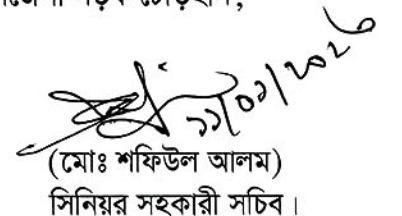 ১১/০১/২০২৬
(মোঃ শফিউল আলম)
সিনিয়র সহকারী সচিব।